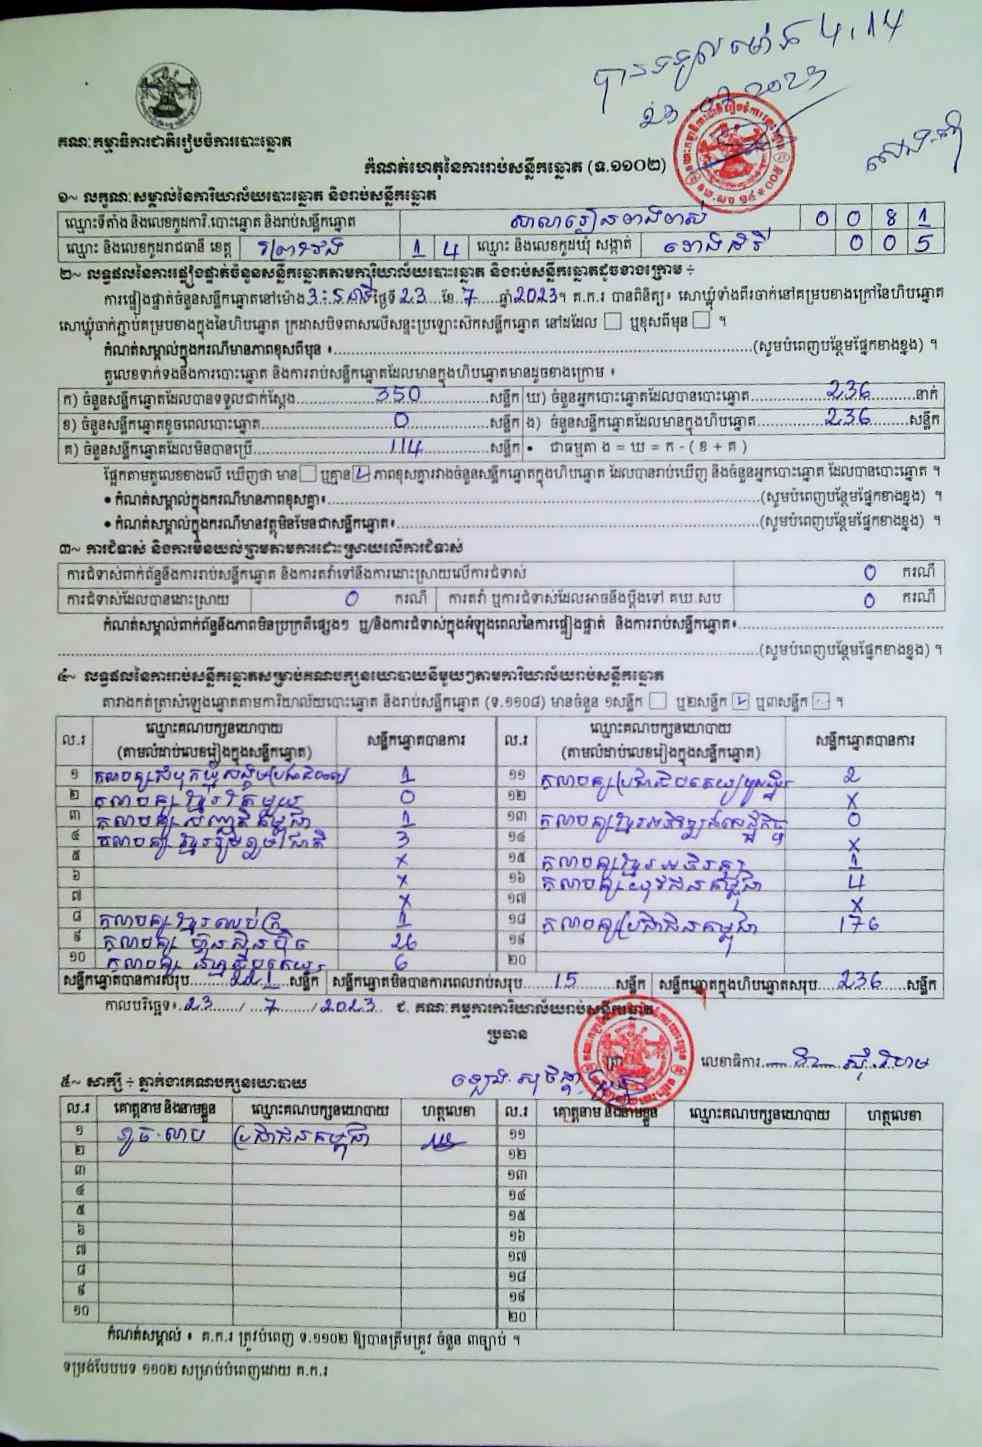 បានទទួលម៉ោង 4:14
23-07-2023
គណៈកម្មាធិការជាតិរៀបចំការបោះឆ្នោត
កំណត់ហេតុនៃការរាប់សន្លឹកឆ្នោត (ទ.១១០២)
១~ លក្ខណៈសម្គាល់នៃការិយាល័យបោះឆ្នោត និងរាប់សន្លឹកឆ្នោត
ឈ្មោះទីតាំង និងលេខកូដការិ.បោះឆ្នោត និងរាប់សន្លឹកឆ្នោត សាលារៀន 0 0 8 1
ឈ្មោះ និងលេខកូដរាជធានី ខេត្ត ព្រៃវែង 1 4 ឈ្មោះ និងលេខកូដឃុំ សង្កាត់ 0 0 5
២~ លទ្ធផលនៃការផ្ទៀងផ្ទាត់ចំនួនសន្លឹកឆ្នោតតាមការិយាល័យបោះឆ្នោត និងរាប់សន្លឹកឆ្នោតដូចខាងក្រោម ÷
ការផ្ទៀងផ្ទាត់ចំនួនសន្លឹកឆ្នោតនៅម៉ោង ថ្ងៃទី 23 ខែ 7 ឆ្នាំ 2023 ។ គ.ក.រ បានពិនិត្យ៖ សោឃ្លុំទាំងពីរចាក់នៅគម្របខាងក្រៅនៃហិបឆ្នោត
សោឃ្លុំចាក់ភ្ជាប់គម្របខាងក្នុងនៃហិបឆ្នោត ក្រដាសបិទពាសលើសន្ទះប្រឡោះស៊កសន្លឹកឆ្នោត នៅដដែល ☐ ឬខុសពីមុន ☐ ។
កំណត់សម្គាល់ក្នុងករណីមានភាពខុសពីមុន ៖ (សូមបំពេញបន្ថែមផ្នែកខាងខ្នង) ។
តួលេខទាក់ទងនឹងការបោះឆ្នោត និងការរាប់សន្លឹកឆ្នោតដែលមានក្នុងហិបឆ្នោតមានដូចខាងក្រោម ៖
ក) ចំនួនសន្លឹកឆ្នោតដែលបានទទួលជាក់ស្ដែង 350 សន្លឹក ឃ) ចំនួនអ្នកបោះឆ្នោតដែលបានបោះឆ្នោត 236 នាក់
ខ) ចំនួនសន្លឹកឆ្នោតខូចពេលបោះឆ្នោត 0 សន្លឹក ង) ចំនួនសន្លឹកឆ្នោតដែលមានក្នុងហិបឆ្នោត 236 សន្លឹក
គ) ចំនួនសន្លឹកឆ្នោតដែលមិនបានប្រើ 114 សន្លឹក • ជាធម្មតា ង = ឃ = ក - ( ខ + គ )
ផ្អែកតាមតួលេខខាងលើ ឃើញថា មាន ☐ ឬគ្មាន ☑ ភាពខុសគ្នារវាងចំនួនសន្លឹកឆ្នោតក្នុងហិបឆ្នោត ដែលបានរាប់ឃើញ និងចំនួនអ្នកបោះឆ្នោត ដែលបានបោះឆ្នោត ។
• កំណត់សម្គាល់ក្នុងករណីមានភាពខុសគ្នា៖ (សូមបំពេញបន្ថែមផ្នែកខាងខ្នង) ។
• កំណត់សម្គាល់ក្នុងករណីមានវត្ថុមិនមែនជាសន្លឹកឆ្នោត៖ (សូមបំពេញបន្ថែមផ្នែកខាងខ្នង) ។
៣~ ការជំទាស់ និងការមិនយល់ព្រមតាមការដោះស្រាយលើការជំទាស់
ការជំទាស់ពាក់ព័ន្ធនឹងការរាប់សន្លឹកឆ្នោត និងការតវ៉ាទៅនឹងការដោះស្រាយលើការជំទាស់ 0 ករណី
ការជំទាស់ដែលបានដោះស្រាយ 0 ករណី ការតវ៉ា ឬការជំទាស់ដែលអាចនឹងប្ដឹងទៅ គឃ.សប 0 ករណី
កំណត់សម្គាល់ពាក់ព័ន្ធនឹងភាពមិនប្រក្រតីផ្សេងៗ ឬ/និងការជំទាស់ក្នុងអំឡុងពេលនៃការផ្ទៀងផ្ទាត់ និងការរាប់សន្លឹកឆ្នោត៖
(សូមបំពេញបន្ថែមផ្នែកខាងខ្នង) ។
៤~ លទ្ធផលនៃការរាប់សន្លឹកឆ្នោតសម្រាប់គណបក្សនយោបាយនីមួយៗតាមការិយាល័យរាប់សន្លឹកឆ្នោត
តារាងកត់ត្រាសំឡេងឆ្នោតតាមការិយាល័យបោះឆ្នោត និងរាប់សន្លឹកឆ្នោត (ទ.១១០៨) មានចំនួន ១សន្លឹក ☐ ឬ២សន្លឹក ☑ ឬ៣សន្លឹក ☐ ។
ល.រ ឈ្មោះគណបក្សនយោបាយ (តាមលំដាប់លេខរៀងក្នុងសន្លឹកឆ្នោត) សន្លឹកឆ្នោតបានការ ល.រ ឈ្មោះគណបក្សនយោបាយ (តាមលំដាប់លេខរៀងក្នុងសន្លឹកឆ្នោត) សន្លឹកឆ្នោតបានការ
១ គណបក្សសំបុកឃ្មុំសង្គមប្រជាធិបតេយ្យ 1 ១១ គណបក្សប្រជាធិបតេយ្យមូលដ្ឋាន 2
២ គណបក្សខ្មែរតែមួយ 0 ១២ x
៣ គណបក្ស កម្ពុជា 1 ១៣ គណបក្សខ្មែរអភិវឌ្ឍន៍សេដ្ឋកិច្ច 0
៤ គណបក្សខ្មែររួបរួមជាតិ 3 ១៤ x
៥ x ១៥ គណបក្សខ្មែរអភិរក្ស 1
៦ x ១៦ គណបក្សយុវជនកម្ពុជា 4
៧ x ១៧ x
៨ គណបក្សខ្មែរឈប់ក្រ 1 ១៨ គណបក្សប្រជាជនកម្ពុជា 176
៩ គណបក្សហ្វ៊ុនស៊ិនប៉ិច 26 ១៩
១០ គណបក្ស 6 ២០
សន្លឹកឆ្នោតបានការសរុប 221 សន្លឹក សន្លឹកឆ្នោតមិនបានការពេលរាប់សរុប 15 សន្លឹក សន្លឹកឆ្នោតក្នុងហិបឆ្នោតសរុប 236 សន្លឹក
កាលបរិច្ឆេទ៖ 23 / 7 / 2023 ជ. គណៈកម្មការការិយាល័យរាប់សន្លឹកឆ្នោត
ប្រធាន
លេខាធិការ
៥~ សាក្សី ÷ ភ្នាក់ងារគណបក្សនយោបាយ
ល.រ គោត្តនាម និងនាមខ្លួន ឈ្មោះគណបក្សនយោបាយ ហត្ថលេខា ល.រ គោត្តនាម និងនាមខ្លួន ឈ្មោះគណបក្សនយោបាយ ហត្ថលេខា
១ ប្រជាជនកម្ពុជា ១១
២ ១២
៣ ១៣
៤ ១៤
៥ ១៥
៦ ១៦
៧ ១៧
៨ ១៨
៩ ១៩
១០ ២០
កំណត់សម្គាល់ ៖ គ.ក.រ ត្រូវបំពេញ ទ.១១០២ ឱ្យបានត្រឹមត្រូវ ចំនួន ៣ច្បាប់ ។
ទម្រង់បែបបទ ១១០២ សម្រាប់បំពេញដោយ គ.ក.រ